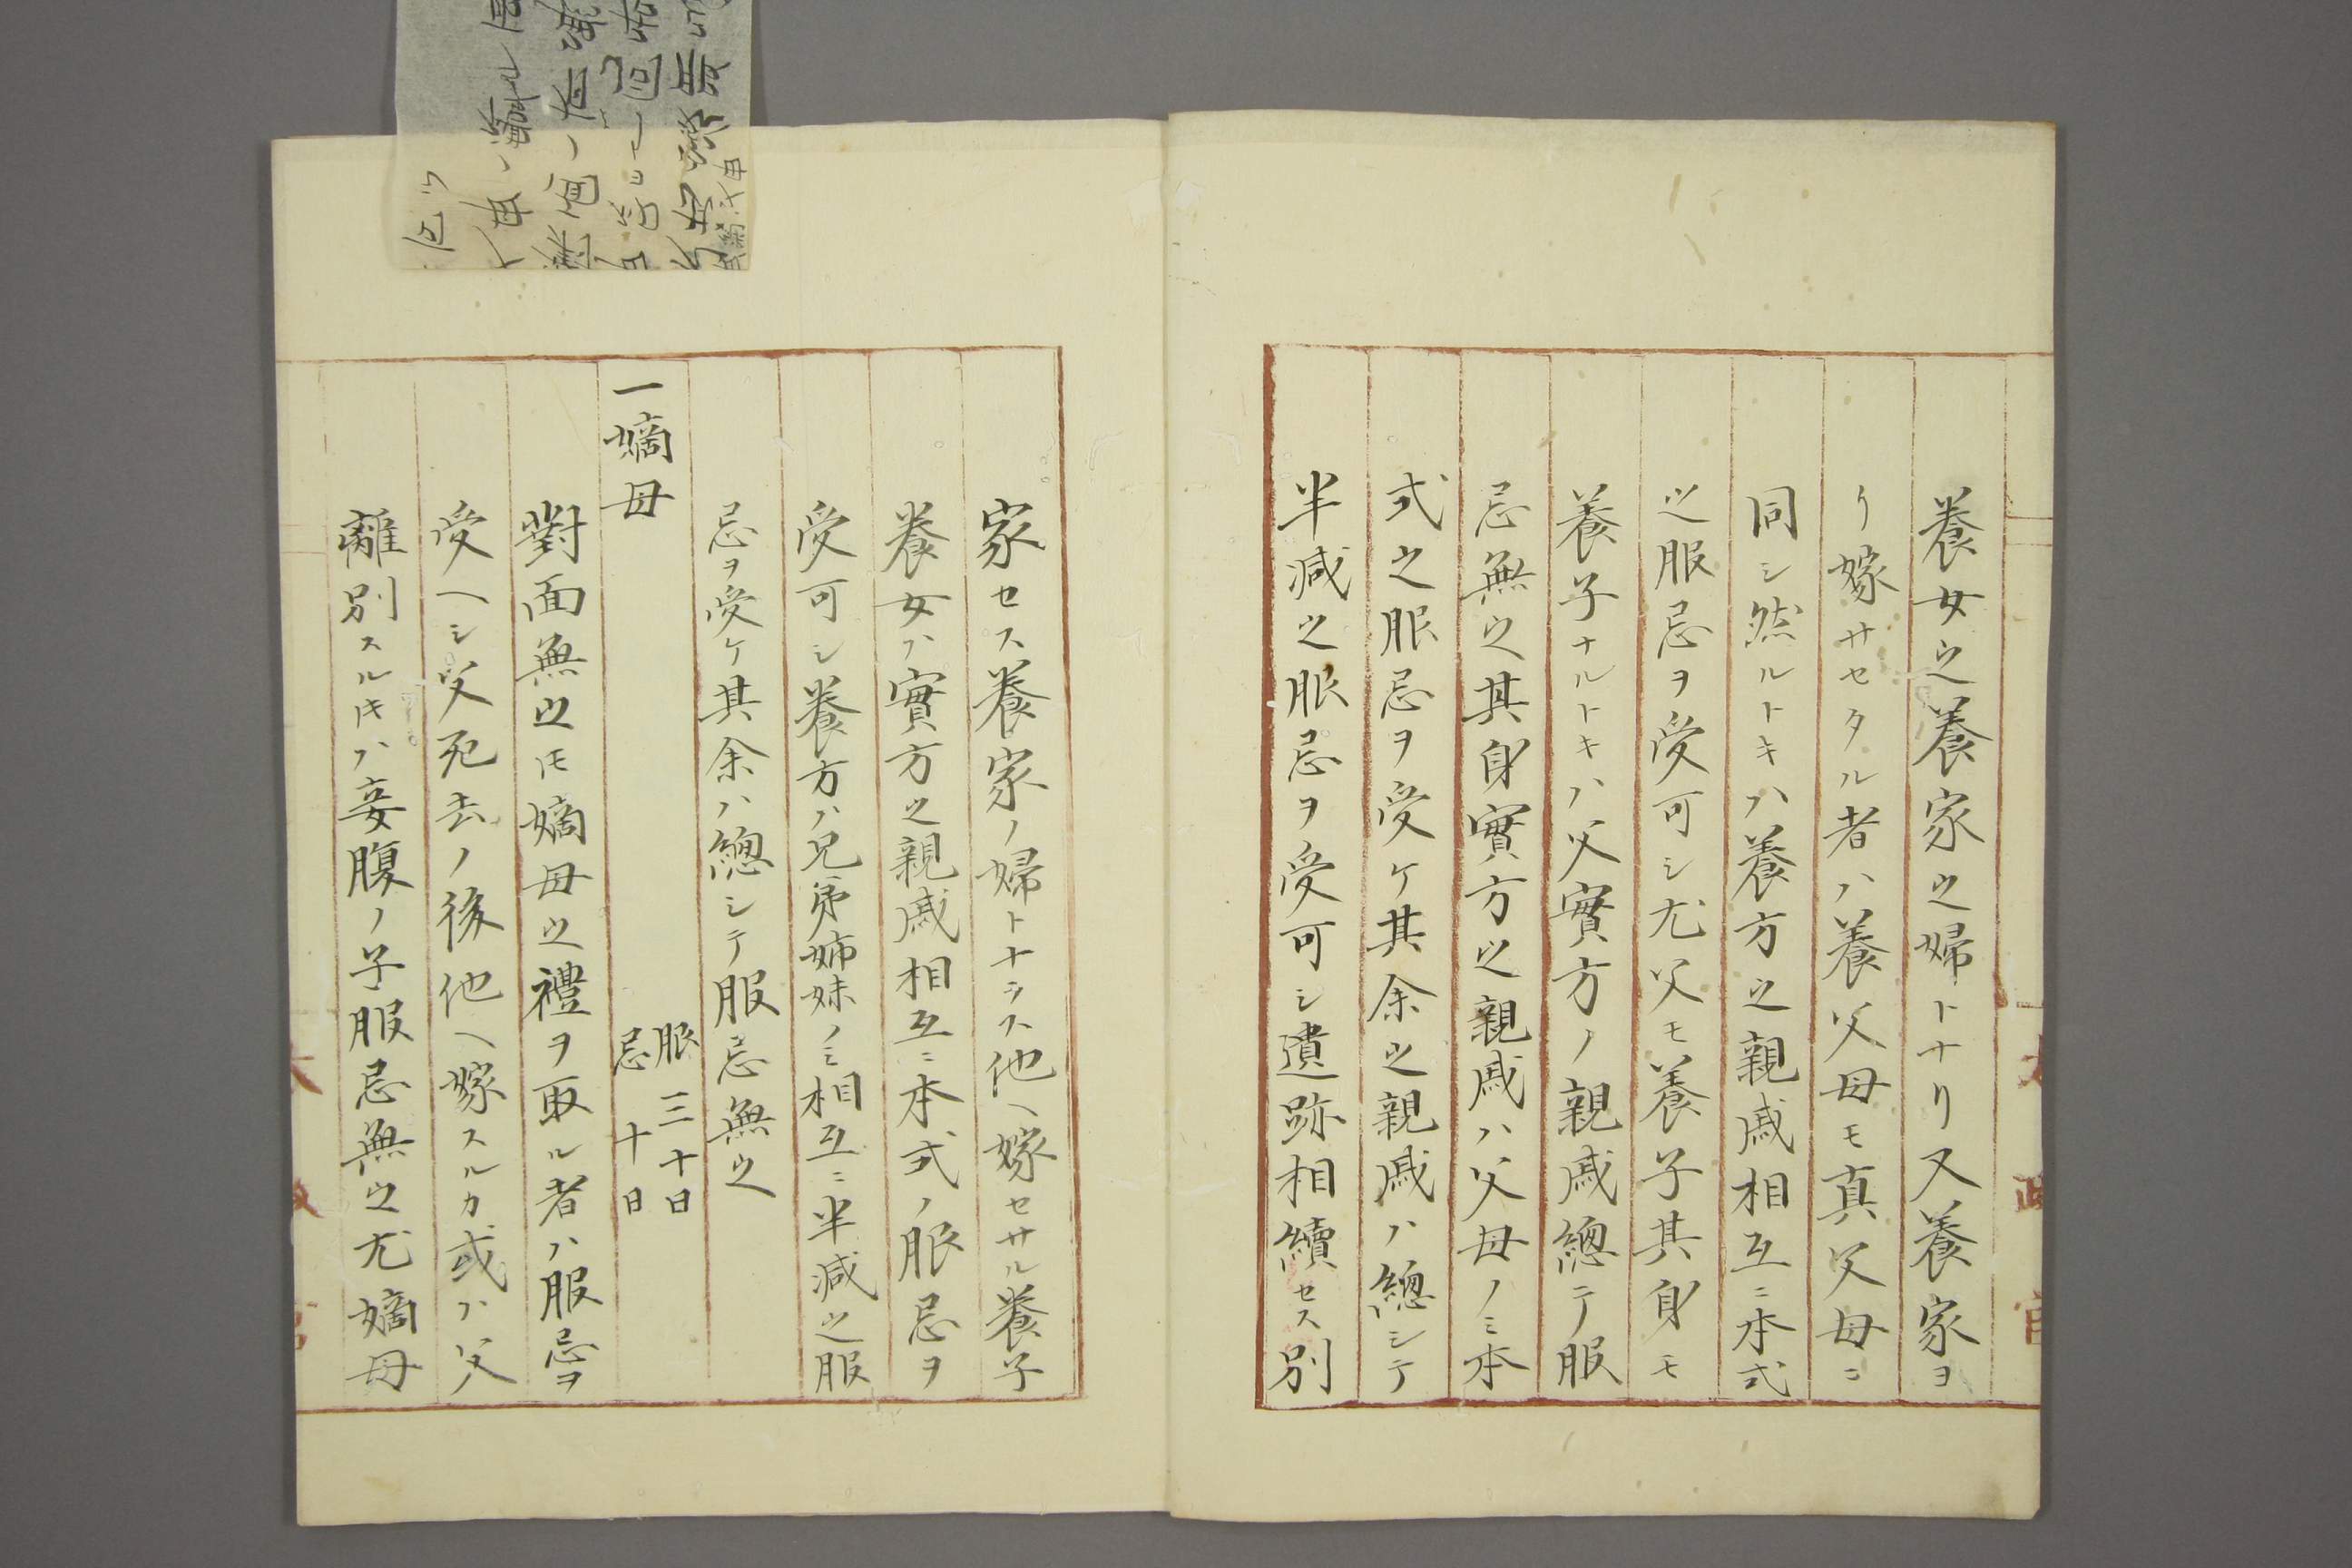 養女之養家之婦トナリ又養家ヨ
リ嫁サセタル者ハ養父母モ真父母ニ
同シ然ルトキハ養方之親戚相互ニ本式
之服忌ヲ受可シ尤父モ養子其身モ
養子ナルトキハ父實方ノ親戚總テ服
忌無之其身實方之親戚ハ父母ノミ本
式之服忌ヲ受ケ其余之親戚ハ總シテ
半減之服忌ヲ受可シ遺跡相續セス別
家セス養家ノ婦トナラス他ヘ嫁セサル養子
養女ハ實方之親戚相互ニ本式ノ服忌ヲ
受可シ養方ハ兄弟姉妹ノミ相互ニ半減之服
忌ヲ受ケ其余ハ總シテ服忌無之
一嫡母
服三十日
忌十日
對面無之𪜈嫡母之禮ヲ取ル者ハ服忌ヲ
受ヘシ父死去ノ後他ヘ嫁スルカ或ハ父
離別スル𪜈ハ妾腹ノ子服忌無之尤嫡母